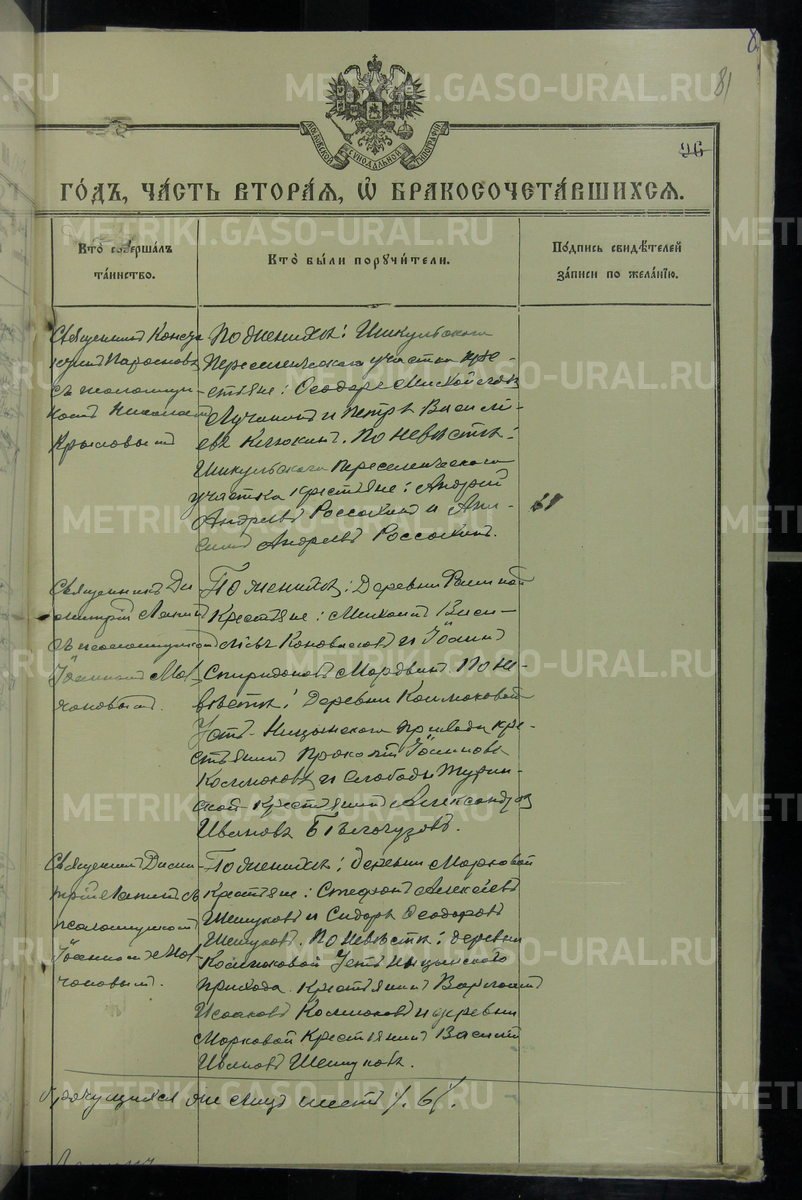 8
81
МОСКОВСКОЙ СѴНОДАЛЬНОЙ ТИПОГРАФІИ
96
ГО́ДЪ, ЧА́СТЬ ВТОРА́Я, Ѽ БРАКОСОЧЕТА́ВШИХСЯ.
Кто̀ соверша́лъ та́инство.
Кто̀ бы́ли порꙋчи́тели.
По́дпись свидѣ́телей за́писи по жела́нїю.
Священникъ
съ псаломщи-
комъ Николаемъ
Крыловымъ
По женихѣ: Шикульскаго
Переселенческаго участка кре-
стьяне: Ѳеодоръ
Лучинин и Петръ Василь-
евъ Клюкинъ. По невѣстѣ:
Шикульскаго переселенческаго
участка крестьяне: Андрей
Андреевъ Россохинъ и
Андреевъ Россохинъ.
Священникъ Ди-
митрій Ляпинъ
съ псаломщикомъ
Іоанномъ Мол-
чановымъ.
По женихѣ: Деревни
Крестьяне: Михаилъ Васи-
льевъ Коноваловъ и Іоаннъ
Спиридоновъ Мордвинъ. По не-
вѣстѣ: Деревни Калмаковой
Усть-Ницынскаго прихода кре-
стьянинъ Прокопій Іоанновъ
Калмаковъ и слободы Турин-
ской крестьянинъ Александръ
Ивановъ Бѣлоглузовъ.
Священникъ Дими-
трій Ляпинъ съ
псаломщикомъ
Іоанномъ Мол-
чановымъ.
По женихѣ: деревни Марковой
Крестьяне: Стефанъ Алексѣевъ
Шешуковъ и Сидоръ Ѳеодоровъ
Шешуковъ. По невѣстѣ: деревни
Калмаковой Усть Ницынскаго
прихода крестьянинъ Варлаамъ
Исааковъ Калмаковъ и деревни
Марковой крестьянинъ Василій
Ивановъ Шешуковъ.
мѣсяцъ шесть /. 6/.
METRIKI.GASO-URAL.RU